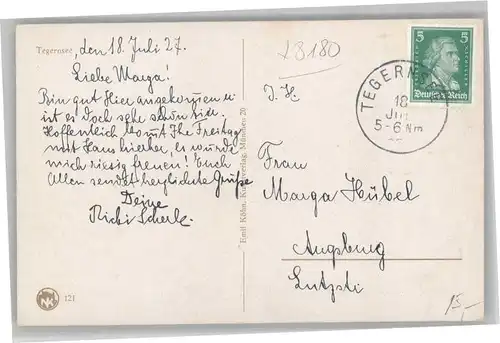 Tegernsee, den 18. Juli 27.
Liebe Marga!
Bin gut hier angekommen u.
ist es doch sehr schön hier.
Hoffentlich kommt Ihr Freitag
mit Hans hierher, es würde
mich riesig freuen! Euch
Allen sendet herzlichste Grüße
Deine
Richi Scherle.
NK 121
Emil Köhn, Kunstverlag, München 20
LB180
5 5
Deutsches Reich
TEGERNSEE
18
JUL
5-6 Nm
Frau
Marga Hübel
Augsburg
15,-